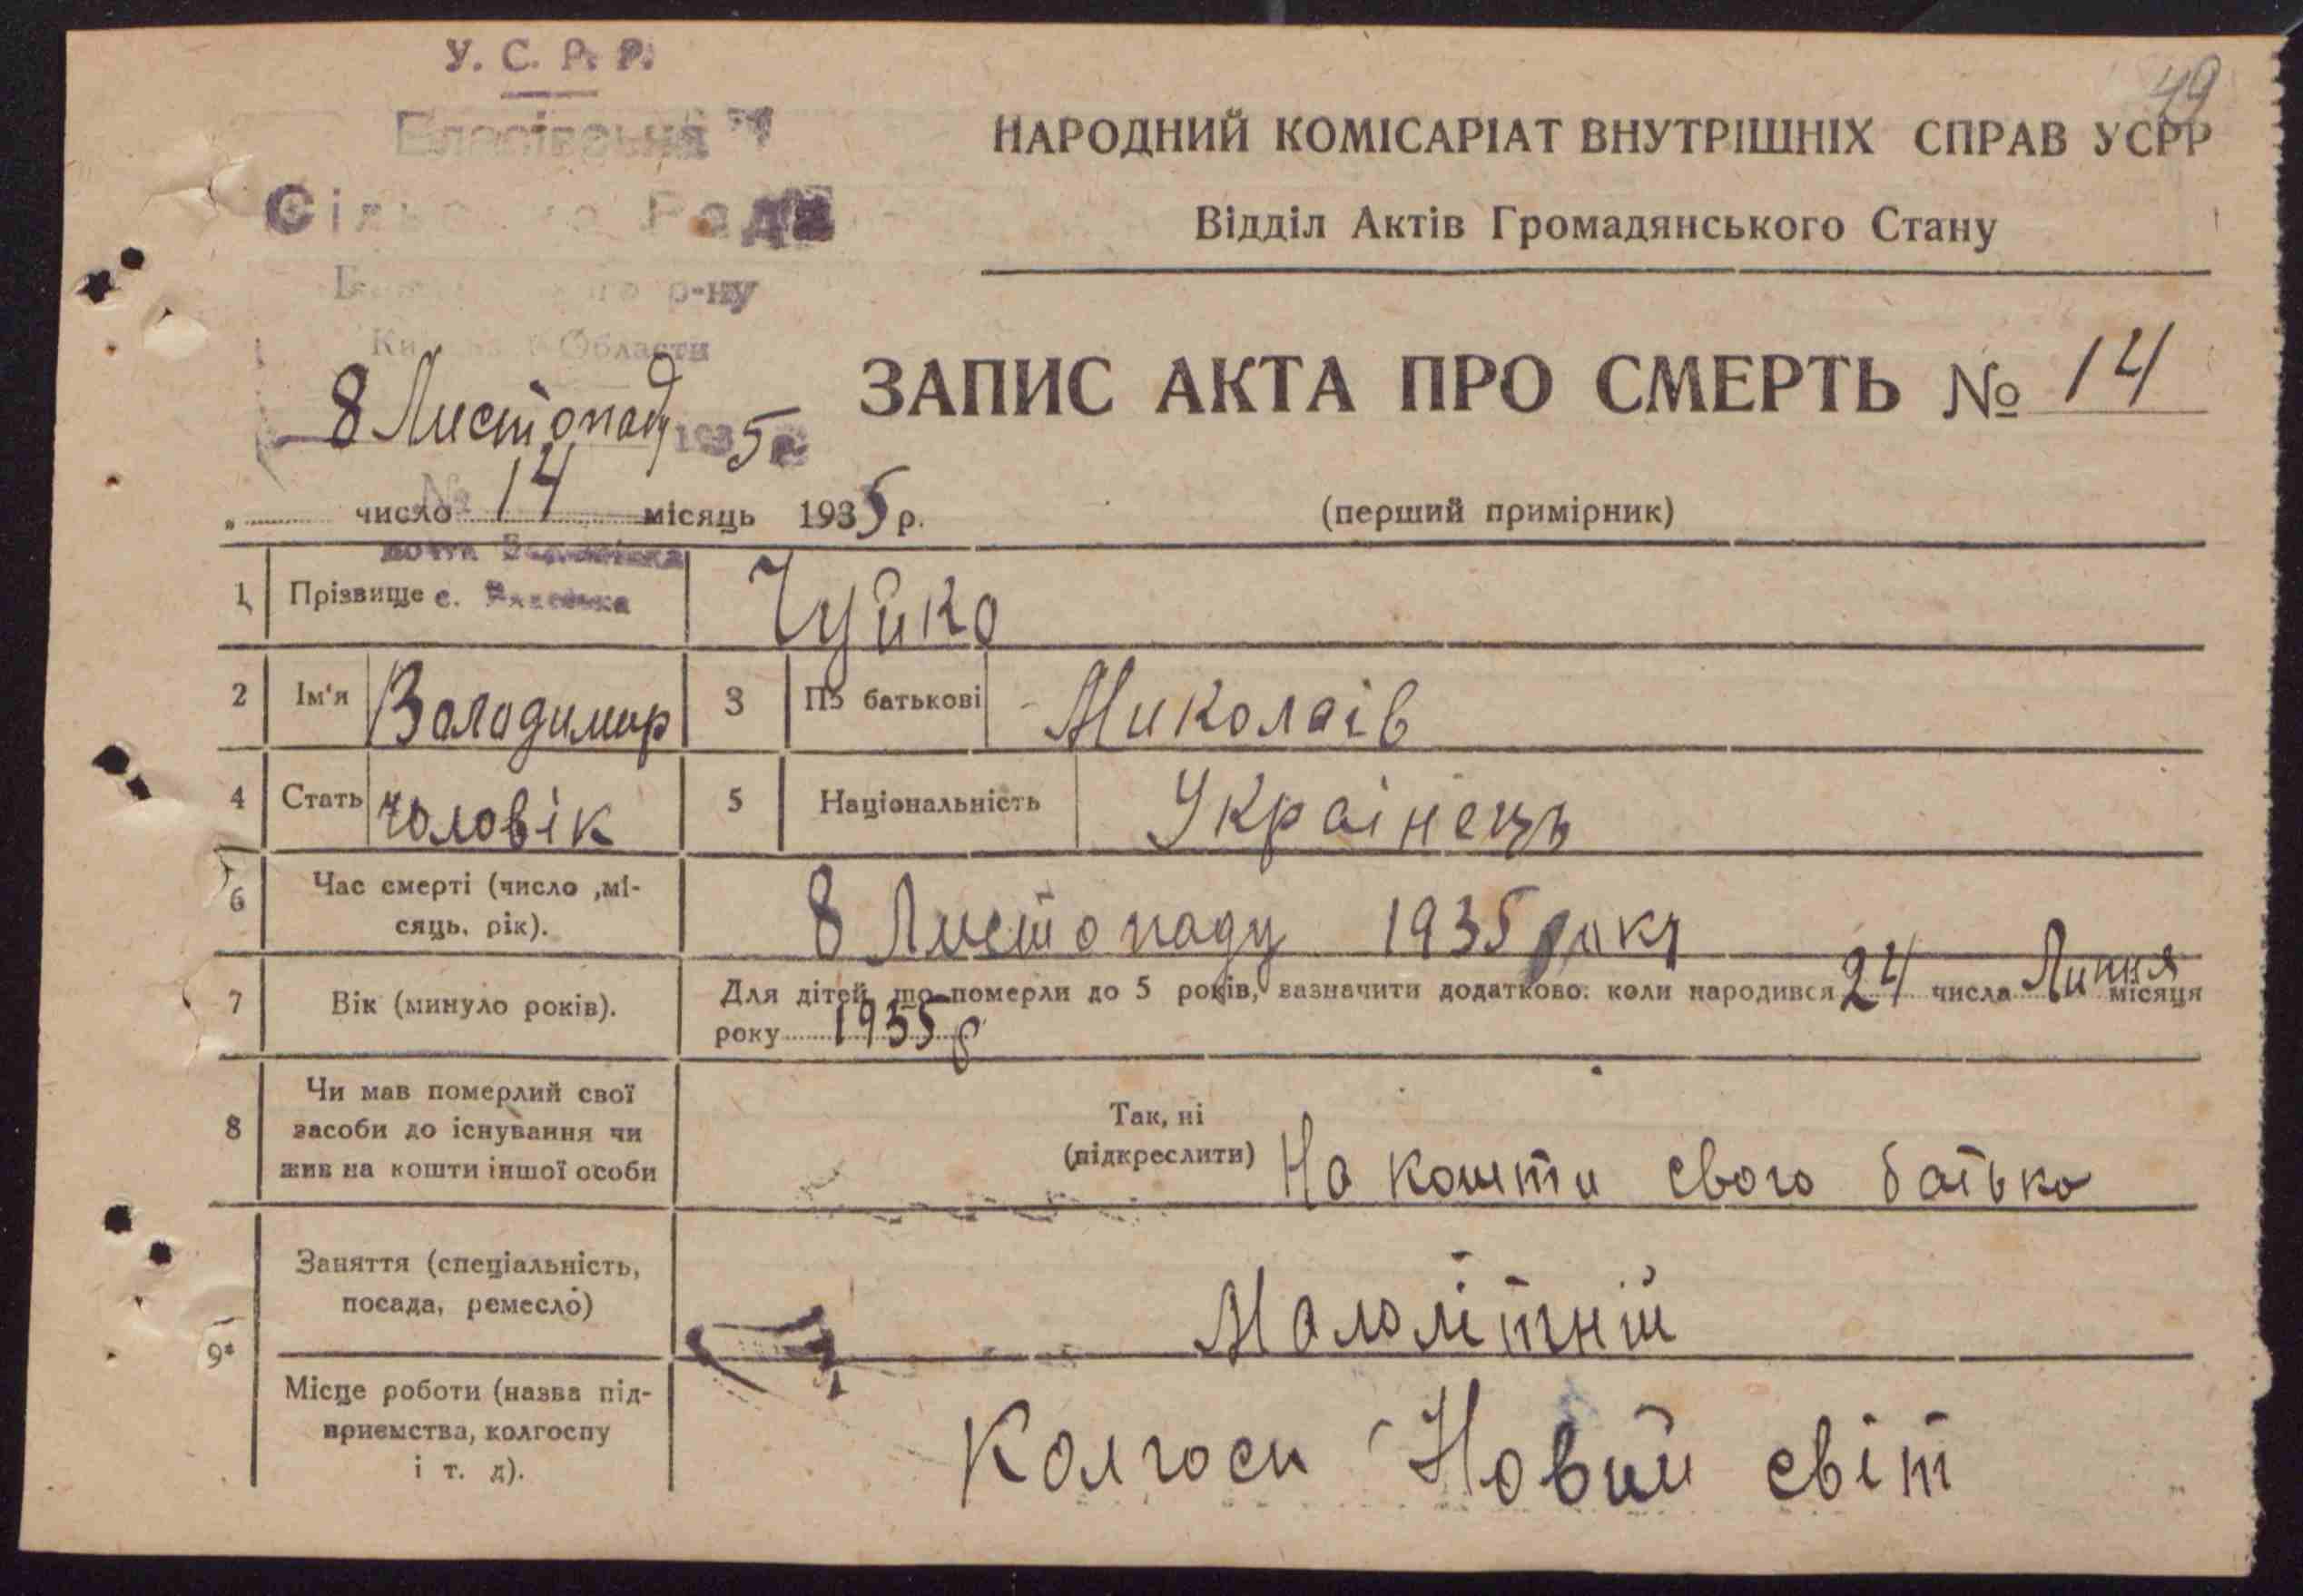 49
У. С. Р. Р.
НАРОДНИЙ КОМІСАРІАТ ВНУТРІШНІХ СПРАВ УСРР
Відділ Актів Громадянського Стану
Рада
р-ну
Области
8 Листопаду 1935 р.
ЗАПИС АКТА ПРО СМЕРТЬ № 14
№ 14
„ число місяць 1935 р.
(перший примірник)
почта
1 Прізвище Чуйко
с.
2 Ім'я Володимир 3 По батькові Миколаів
4 Стать чоловік 5 Національність Украінець
6 Час смерті (число ,мі-
сяць, рік).
8 Листопаду 1935 року
7 Вік (минуло років). Для дітей, що померли до 5 років, зазначити додатково: коли народився 24 числа Липня місяця
року 1935 р
8 Чи мав померлий свої
засоби до існування чи
жив на кошти іншої особи
Так, ні
(підкреслити) На кошти свого батька
9* Заняття (спеціальність,
посада, ремесло)
Малолітній
Місце роботи (назва під-
приємства, колгоспу
і т. д).
Колгосп Новий світ